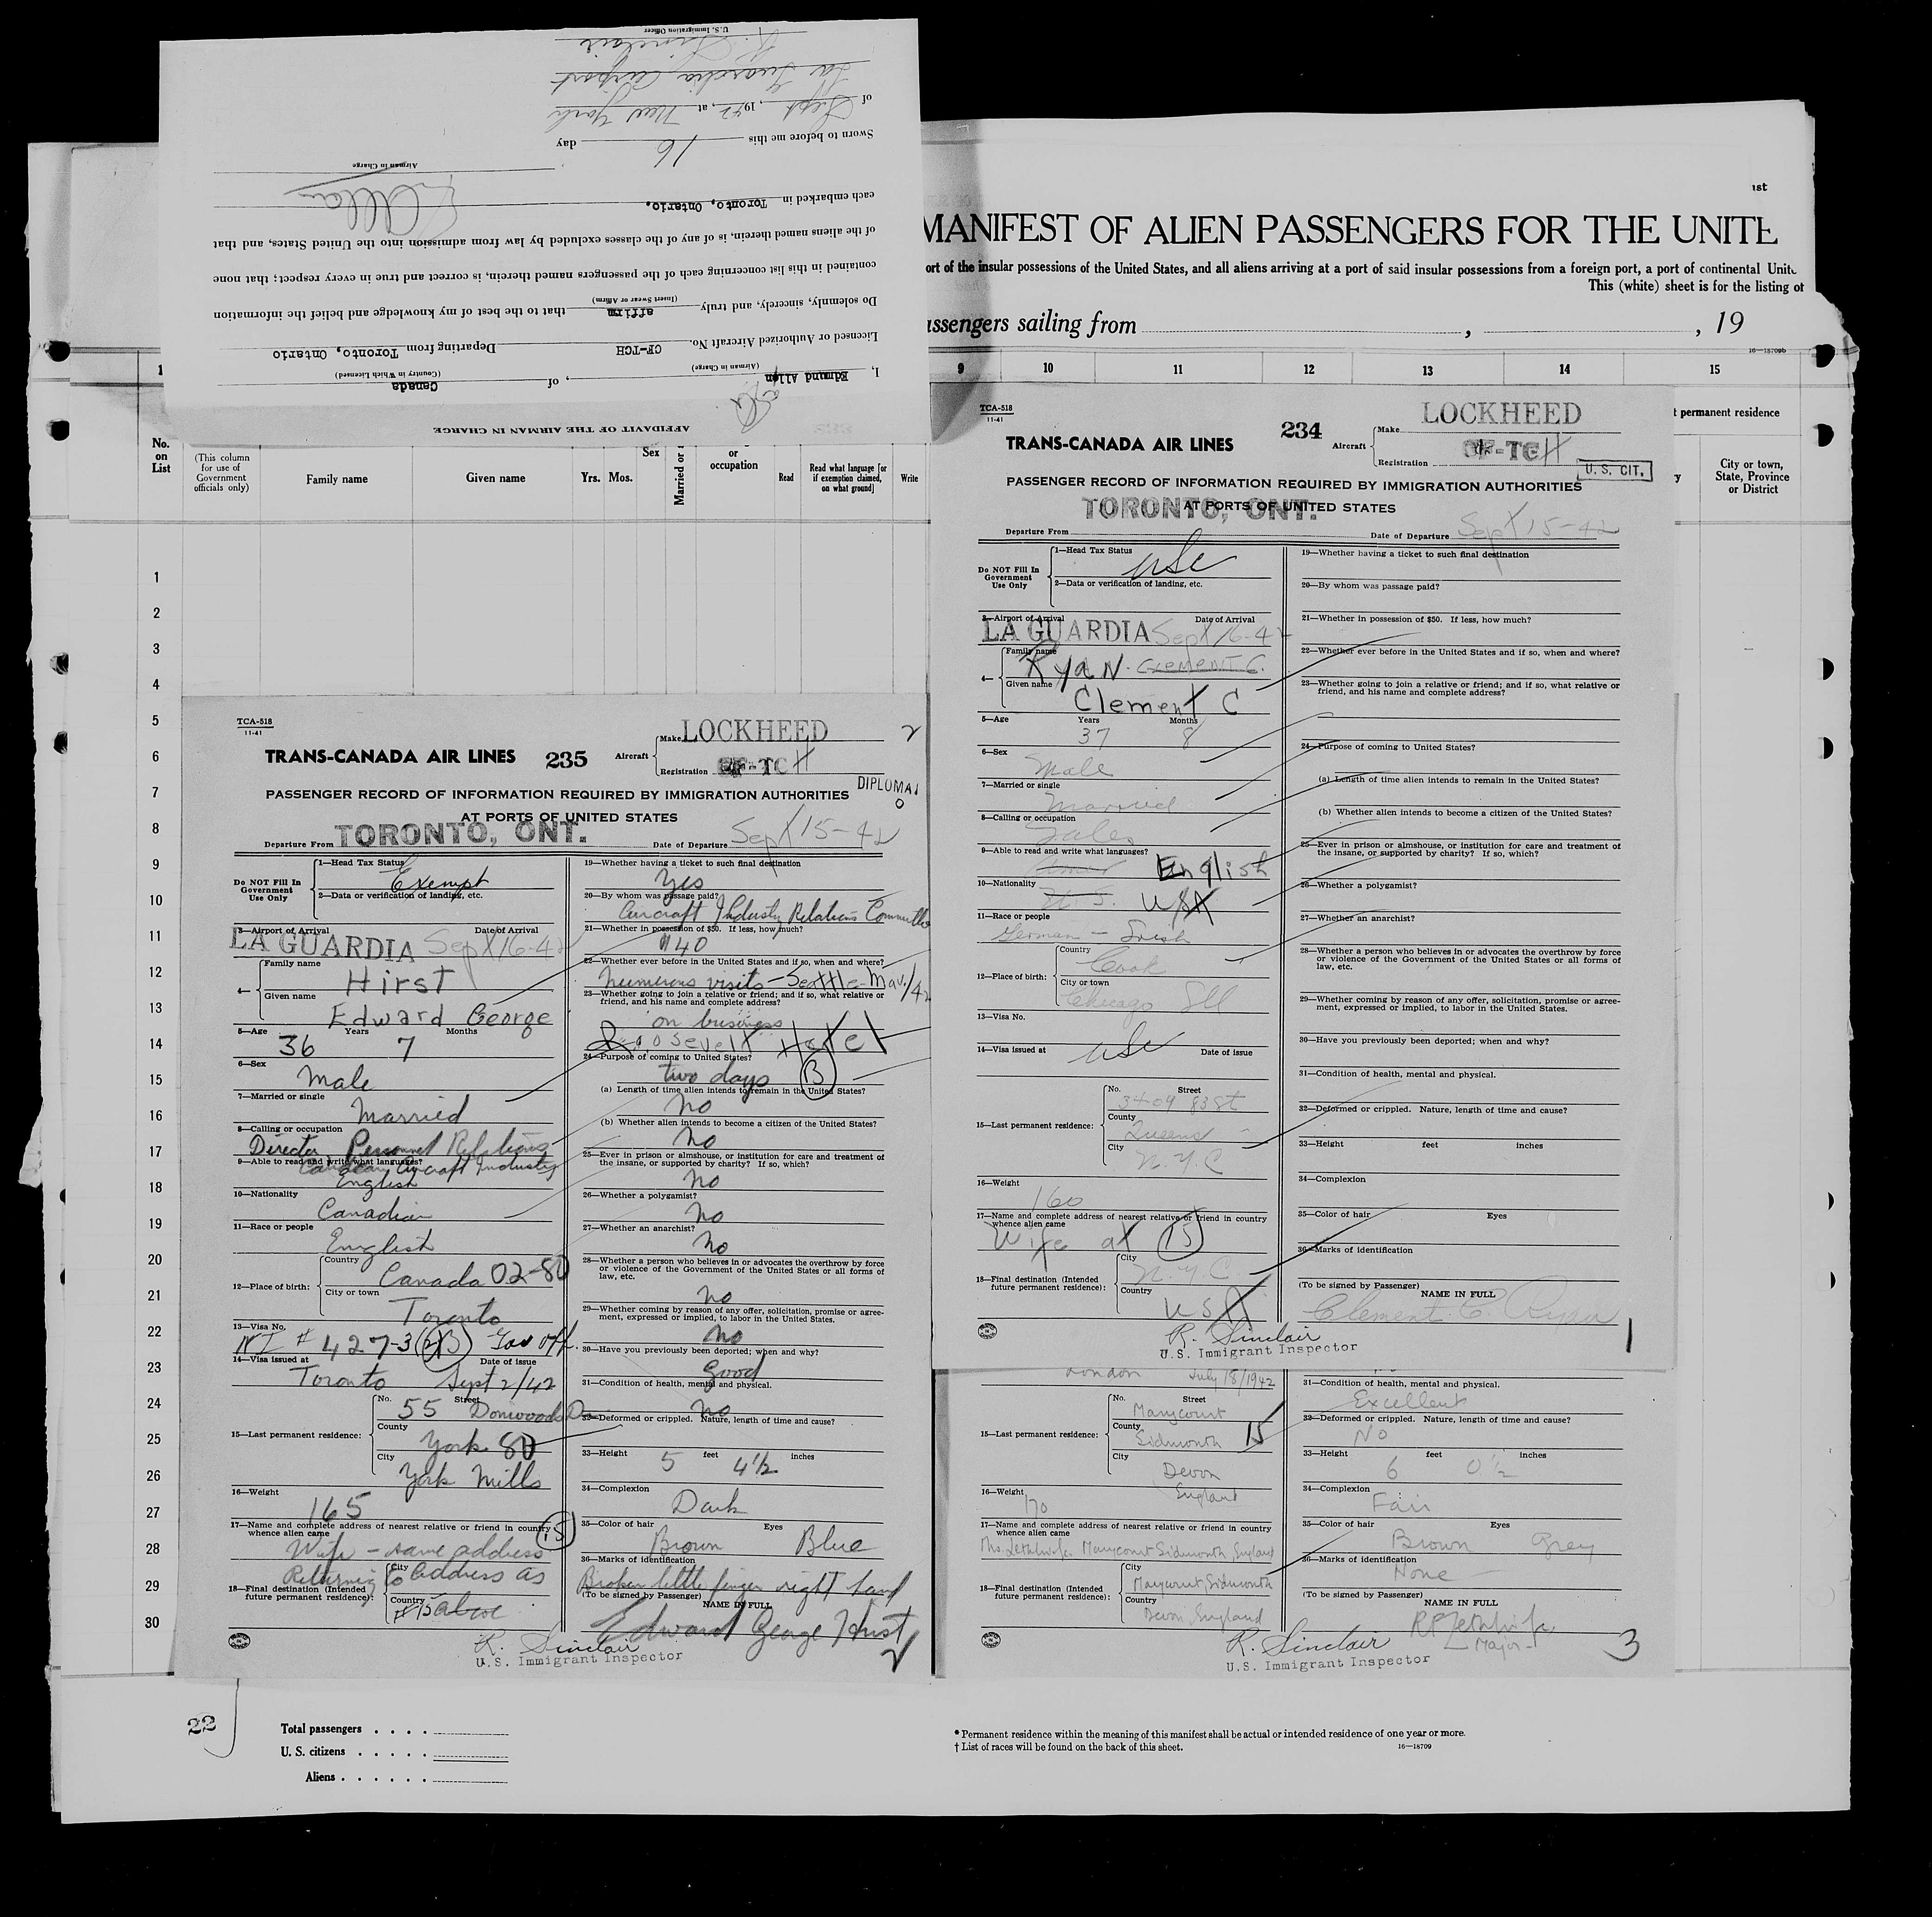 AFFIDAVIT OF THE AIRMAN IN CHARGE
I, Edmund Allen, of Canada
(Airman in Charge) (Country in Which Licensed)
Licensed or Authorized Aircraft No. CF-TCH Departing from Toronto, Ontario
Do solemnly, sincerely, and truly affirm that to the best of my knowledge and belief the information
(Insert Swear or Affirm)
contained in this list concerning each of the passengers named therein, is correct and true in every respect; that none
of the aliens named therein, is of any of the classes excluded by law from admission into the United States, and that
each embarked in Toronto, Ontario.
Airman in Charge
Sworn to before me this 16 day
of Sept, 1942, at New York
La Guardia Airport
R. Sinclair
U.S. Immigration Officer
ist
MANIFEST OF ALIEN PASSENGERS FOR THE UNITE
ort of the insular possessions of the United States, and all aliens arriving at a port of said insular possessions from a foreign port, a port of continental Unite
This (white) sheet is for the listing of
assengers sailing from , , 19
16—18709b
1 9 10 11 12 13 14 15
No. on List
(This column for use of Government officials only)
Family name
Given name
Yrs. Mos.
Sex
Married or
or occupation
Read
Read what language [or if exemption claimed, on what ground]
Write
t permanent residence
y
City or town, State, Province or District
1
2
3
4
5
6
7
8
9
10
11
12
13
14
15
16
17
18
19
20
21
22
23
24
25
26
27
28
29
30
TCA-518
11-41
TRANS-CANADA AIR LINES 234 Aircraft Make LOCKHEED
Registration CF-TCH
U. S. CIT.
PASSENGER RECORD OF INFORMATION REQUIRED BY IMMIGRATION AUTHORITIES
AT PORTS OF UNITED STATES
Departure From TORONTO, ONT. Date of Departure Sept 15-42
Do NOT Fill In Government Use Only
1—Head Tax Status USC
2—Data or verification of landing, etc.
3—Airport of Arrival Date of Arrival
LA GUARDIA Sept 16-42
4— Family name Ryan. Clement C.
Given name Clement C
5—Age Years Months
37 8
6—Sex
Male
7—Married or single
Married
8—Calling or occupation
Sales
9—Able to read and write what languages?
English
10—Nationality
U.S. USA
11—Race or people
German - Irish
12—Place of birth: Country Cook
City or town
Chicago Ill
13—Visa No.
14—Visa issued at USC Date of issue
15—Last permanent residence: No. Street
3409 83 St
County
Queens
City
N.Y.C
16—Weight
160
17—Name and complete address of nearest relative or friend in country whence alien came
Wife at 15
18—Final destination (Intended future permanent residence): City
N.Y.C
Country
USA
19—Whether having a ticket to such final destination
20—By whom was passage paid?
21—Whether in possession of $50. If less, how much?
22—Whether ever before in the United States and if so, when and where?
23—Whether going to join a relative or friend; and if so, what relative or friend, and his name and complete address?
24—Purpose of coming to United States?
(a) Length of time alien intends to remain in the United States?
(b) Whether alien intends to become a citizen of the United States?
25—Ever in prison or almshouse, or institution for care and treatment of the insane, or supported by charity? If so, which?
26—Whether a polygamist?
27—Whether an anarchist?
28—Whether a person who believes in or advocates the overthrow by force or violence of the Government of the United States or all forms of law, etc.
29—Whether coming by reason of any offer, solicitation, promise or agreement, expressed or implied, to labor in the United States.
30—Have you previously been deported; when and why?
31—Condition of health, mental and physical.
32—Deformed or crippled. Nature, length of time and cause?
33—Height feet inches
34—Complexion
35—Color of hair Eyes
36—Marks of identification
(To be signed by Passenger) NAME IN FULL
Clement C. Ryan
R. Sinclair
U.S. Immigrant Inspector
1
TCA-518
11-41
TRANS-CANADA AIR LINES 235 Aircraft Make LOCKHEED 2
Registration CF-TCH
DIPLOMAT
PASSENGER RECORD OF INFORMATION REQUIRED BY IMMIGRATION AUTHORITIES
AT PORTS OF UNITED STATES
Departure From TORONTO, ONT. Date of Departure Sept 15-42
Do NOT Fill In Government Use Only
1—Head Tax Status
Exempt
2—Data or verification of landing, etc.
3—Airport of Arrival Date of Arrival
LA GUARDIA Sept 16-42
4— Family name
Hirst
Given name
Edward George
5—Age Years Months
36 7
6—Sex
Male
7—Married or single
Married
8—Calling or occupation
Director Personnel Relations
Canadian Aircraft Industry
9—Able to read and write what languages?
English
10—Nationality
Canadian
11—Race or people
English
12—Place of birth: Country
Canada 02-80
City or town
Toronto
13—Visa No.
NI # 427-3(2)(B)
14—Visa issued at Date of issue
Toronto Sept 2/42
15—Last permanent residence: No. Street
55 Donwoods Dr
County
York 80
City
York Mills
16—Weight
165
17—Name and complete address of nearest relative or friend in country whence alien came 15
Wife - same address
18—Final destination (Intended future permanent residence): City
Returning to address as
Country
#15 above
19—Whether having a ticket to such final destination
Yes
20—By whom was passage paid?
Aircraft Industry Relations Committee
21—Whether in possession of $50. If less, how much?
$140
22—Whether ever before in the United States and if so, when and where?
Numerous visits - Seattle - Mar./42
23—Whether going to join a relative or friend; and if so, what relative or friend, and his name and complete address?
on business
Roosevelt Hotel
24—Purpose of coming to United States?
two days B
(a) Length of time alien intends to remain in the United States?
No
(b) Whether alien intends to become a citizen of the United States?
No
25—Ever in prison or almshouse, or institution for care and treatment of the insane, or supported by charity? If so, which?
No
26—Whether a polygamist?
No
27—Whether an anarchist?
No
28—Whether a person who believes in or advocates the overthrow by force or violence of the Government of the United States or all forms of law, etc.
No
29—Whether coming by reason of any offer, solicitation, promise or agreement, expressed or implied, to labor in the United States.
No
30—Have you previously been deported; when and why?
Good
31—Condition of health, mental and physical.
No
32—Deformed or crippled. Nature, length of time and cause?
33—Height 5 feet 4½ inches
34—Complexion
Dark
35—Color of hair Eyes
Brown Blue
36—Marks of identification
Broken little finger right hand
(To be signed by Passenger) NAME IN FULL
Edward George Hirst
R. Sinclair
U.S. Immigrant Inspector
2
London July 18/1942
15—Last permanent residence: No. Street
Manycourt
County
Sidmouth 15
City
Devon
England
16—Weight
170
17—Name and complete address of nearest relative or friend in country whence alien came
Manycourt Sidmouth England
18—Final destination (Intended future permanent residence): City
Manycourt, Sidmouth
Country
Devon, England
31—Condition of health, mental and physical.
Excellent
32—Deformed or crippled. Nature, length of time and cause?
No
33—Height feet inches
6 0½
34—Complexion
Fair
35—Color of hair Eyes
Brown Grey
36—Marks of identification
None
(To be signed by Passenger) NAME IN FULL
Major
R. Sinclair
U.S. Immigrant Inspector
3
22
Total passengers . . . .
U. S. citizens . . . . .
Aliens . . . . . .
* Permanent residence within the meaning of this manifest shall be actual or intended residence of one year or more.
† List of races will be found on the back of this sheet.
16—18709